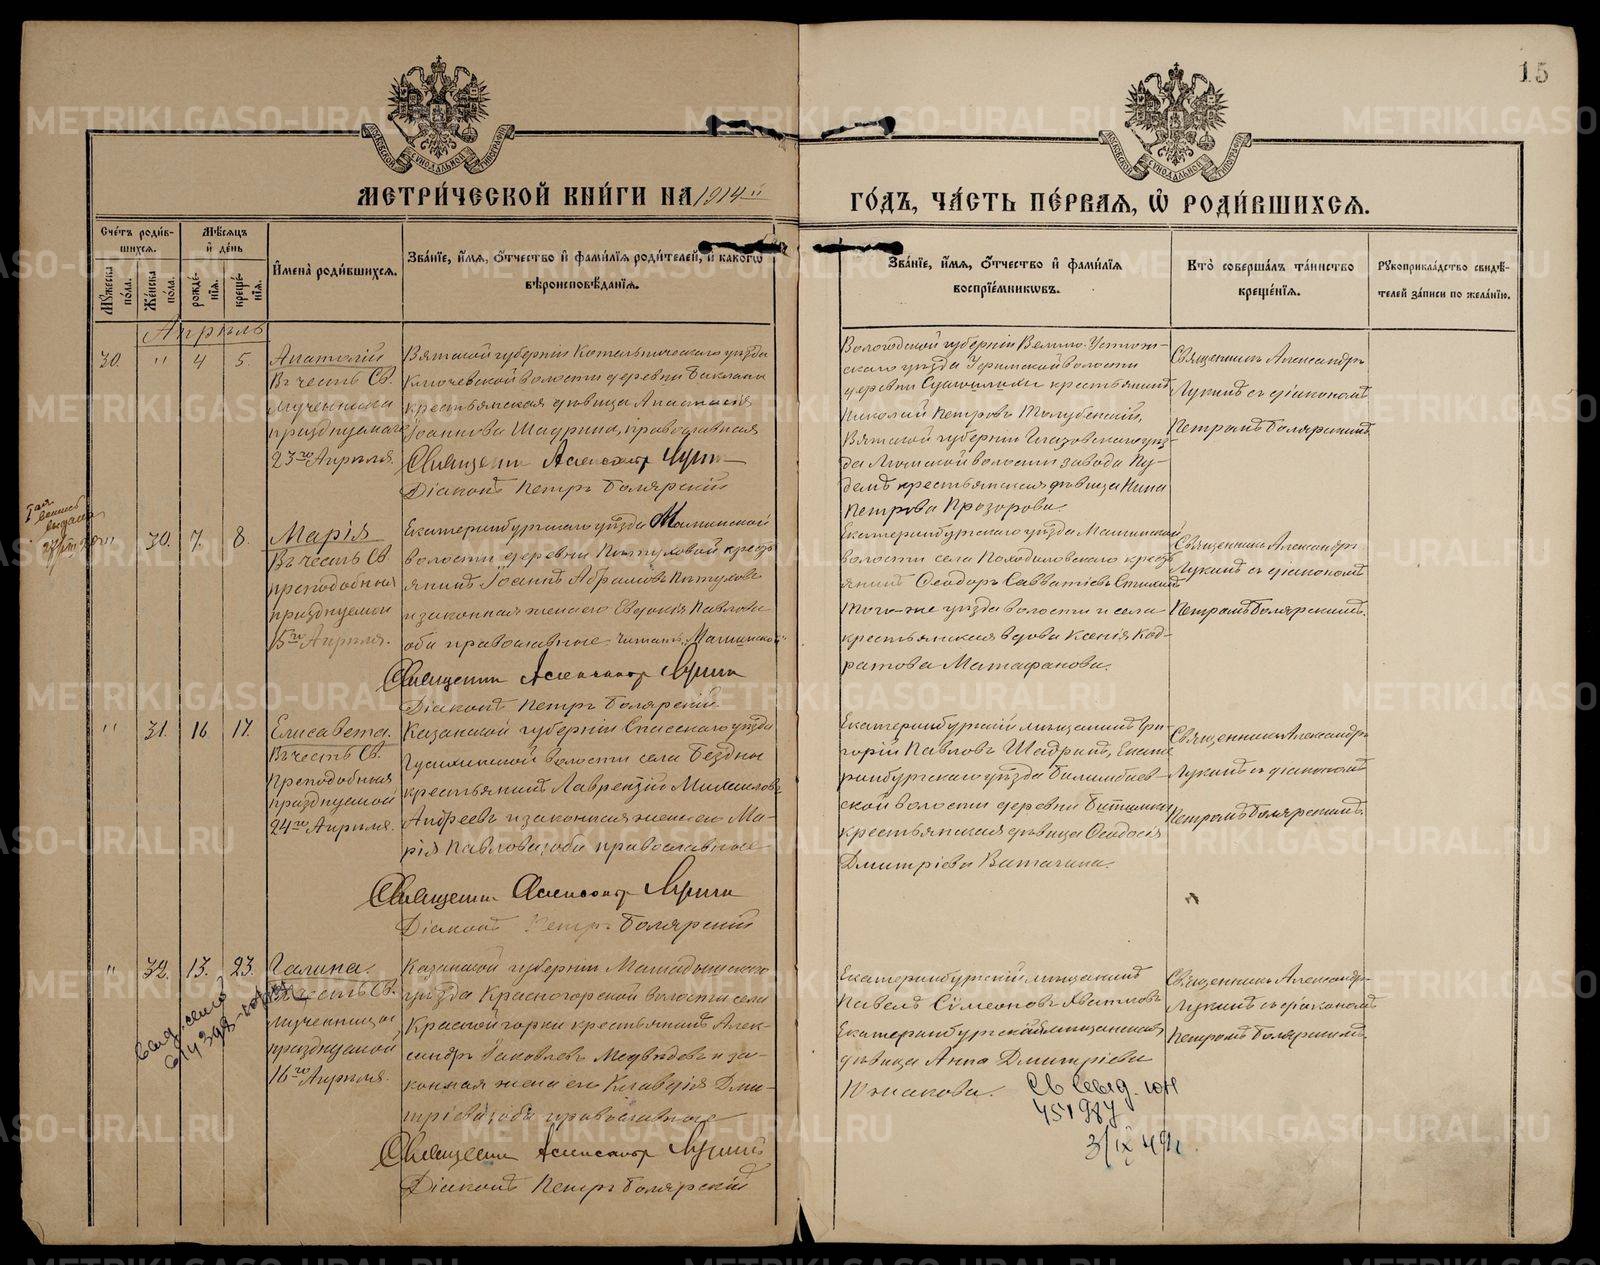 15
МЕТРИ́ЧЕСКОЙ КНИ́ГИ НА 1914й
ГО́ДЪ, ЧА́СТЬ ПЕ́РВАЯ, Ѡ҆ РОДИ́ВШИХСЯ.
Сче́тъ роди́в-
шихся.
Мꙋ́жеска по́ла.
Же́нска по́ла.
Мѣ́сяцъ и҆ де́нь
рожде́-
нїя.
креще́-
нїя.
И҆мена̀ роди́вшихся.
Зва́нїе, и҆́мя, ѻ҆́тчество и҆ фами́лїя роди́телей, и҆ како́гѡ
вѣроисповѣ́данїя.
Зва́нїе, и҆́мя, ѻ҆́тчество и҆ фами́лїя
воспрїе́мникѡвъ.
Кто̀ соверша́лъ та́инство
креще́нїя.
Рꙋкоприкла́дство свидѣ́-
телей за́писи по жела́нїю.
Апрѣль
30. " 4 5.
Анатолій
Въ честь Св.
мученика
празднуемаго
23го Апрѣля.
Вятской губерніи Котельническаго уѣзда
Ключевской волости деревни
крестьянская дѣвица Анастасія
Іоаннова Шадрина, православная
Священникъ Александръ Лукинъ
Діаконъ Петръ Болярскій
Вологодской губерніи Велико-Устюж-
скаго уѣзда волости
деревни крестьянинъ
Николай Петровъ
Вятской губерніи Глазовскаго уѣз-
да волости завода Пу-
демъ крестьянская дѣвица Нина
Петрова Прозорова.
Священникъ Александръ
Лукинъ съ діакономъ
Петромъ Болярскимъ.
" 30. 7. 8.
Марія
Въ честь Св.
преподобныя
празднуемой
Апрѣля.
Екатеринбургскаго уѣзда Маминской
волости деревни Пѣтуховой кресть-
янинъ Іоаннъ Абрамовъ Пѣтуховъ
и законная жена его Евдокія Павлова
оба православные. Читать: "Маминской"
Священникъ Александръ Лукинъ
Діаконъ Петръ Болярскій
Екатеринбургскаго уѣзда Маминской
волости села кресть-
янинъ Ѳеодоръ Савватіевъ
того-же уѣзда волости и села
крестьянская вдова Ксенія Код-
ратова Матафанова.
Священникъ Александръ
Лукинъ съ діакономъ
Петромъ Болярскимъ.
" 31. 16 17.
Елисавета.
Въ честь Св.
Преподобныя
празднуемой
24го Апрѣля.
Казанской губерніи Спасскаго уѣзда
волости села Бездны
крестьянинъ Лаврентій Михаиловъ
Андреевъ и законная жена его Ма-
рія Павлова; оба православные
Священникъ Александръ Лукинъ
Діаконъ Петръ Болярскій
Екатеринбургскій мѣщанинъ Гри-
горій Павловъ Шадринъ, Екате-
ринбургскаго уѣзда Билимбаев-
ской волости деревни Битимки
крестьянская дѣвица Ѳеодосія
Дмитріева
Священникъ Александръ
Лукинъ съ діакономъ
Петромъ Болярскимъ.
" 32. 13. 23.
Галина.
Въ честь Св.
мученицы
празднуемой
16го Апрѣля.
Казанской губерніи
уѣзда Красногорской волости села
Красной горки крестьянинъ Алек-
сандръ Іаковлевъ Медвѣдевъ и за-
конная жена его Клавдія Дми-
тріева; оба православные
Священникъ Александръ Лукинъ
Діаконъ Петръ Болярскій
Екатеринбургскій мѣщанинъ
Павелъ Сѵмеоновъ
Екатеринбургская мѣщанская
дѣвица Анна Дмитріева
Южакова.
Священникъ Александръ
Лукинъ съ діакономъ
Петромъ Болярскимъ.
451987
3/IX 49г.
METRIKI.GASO-URAL.RU